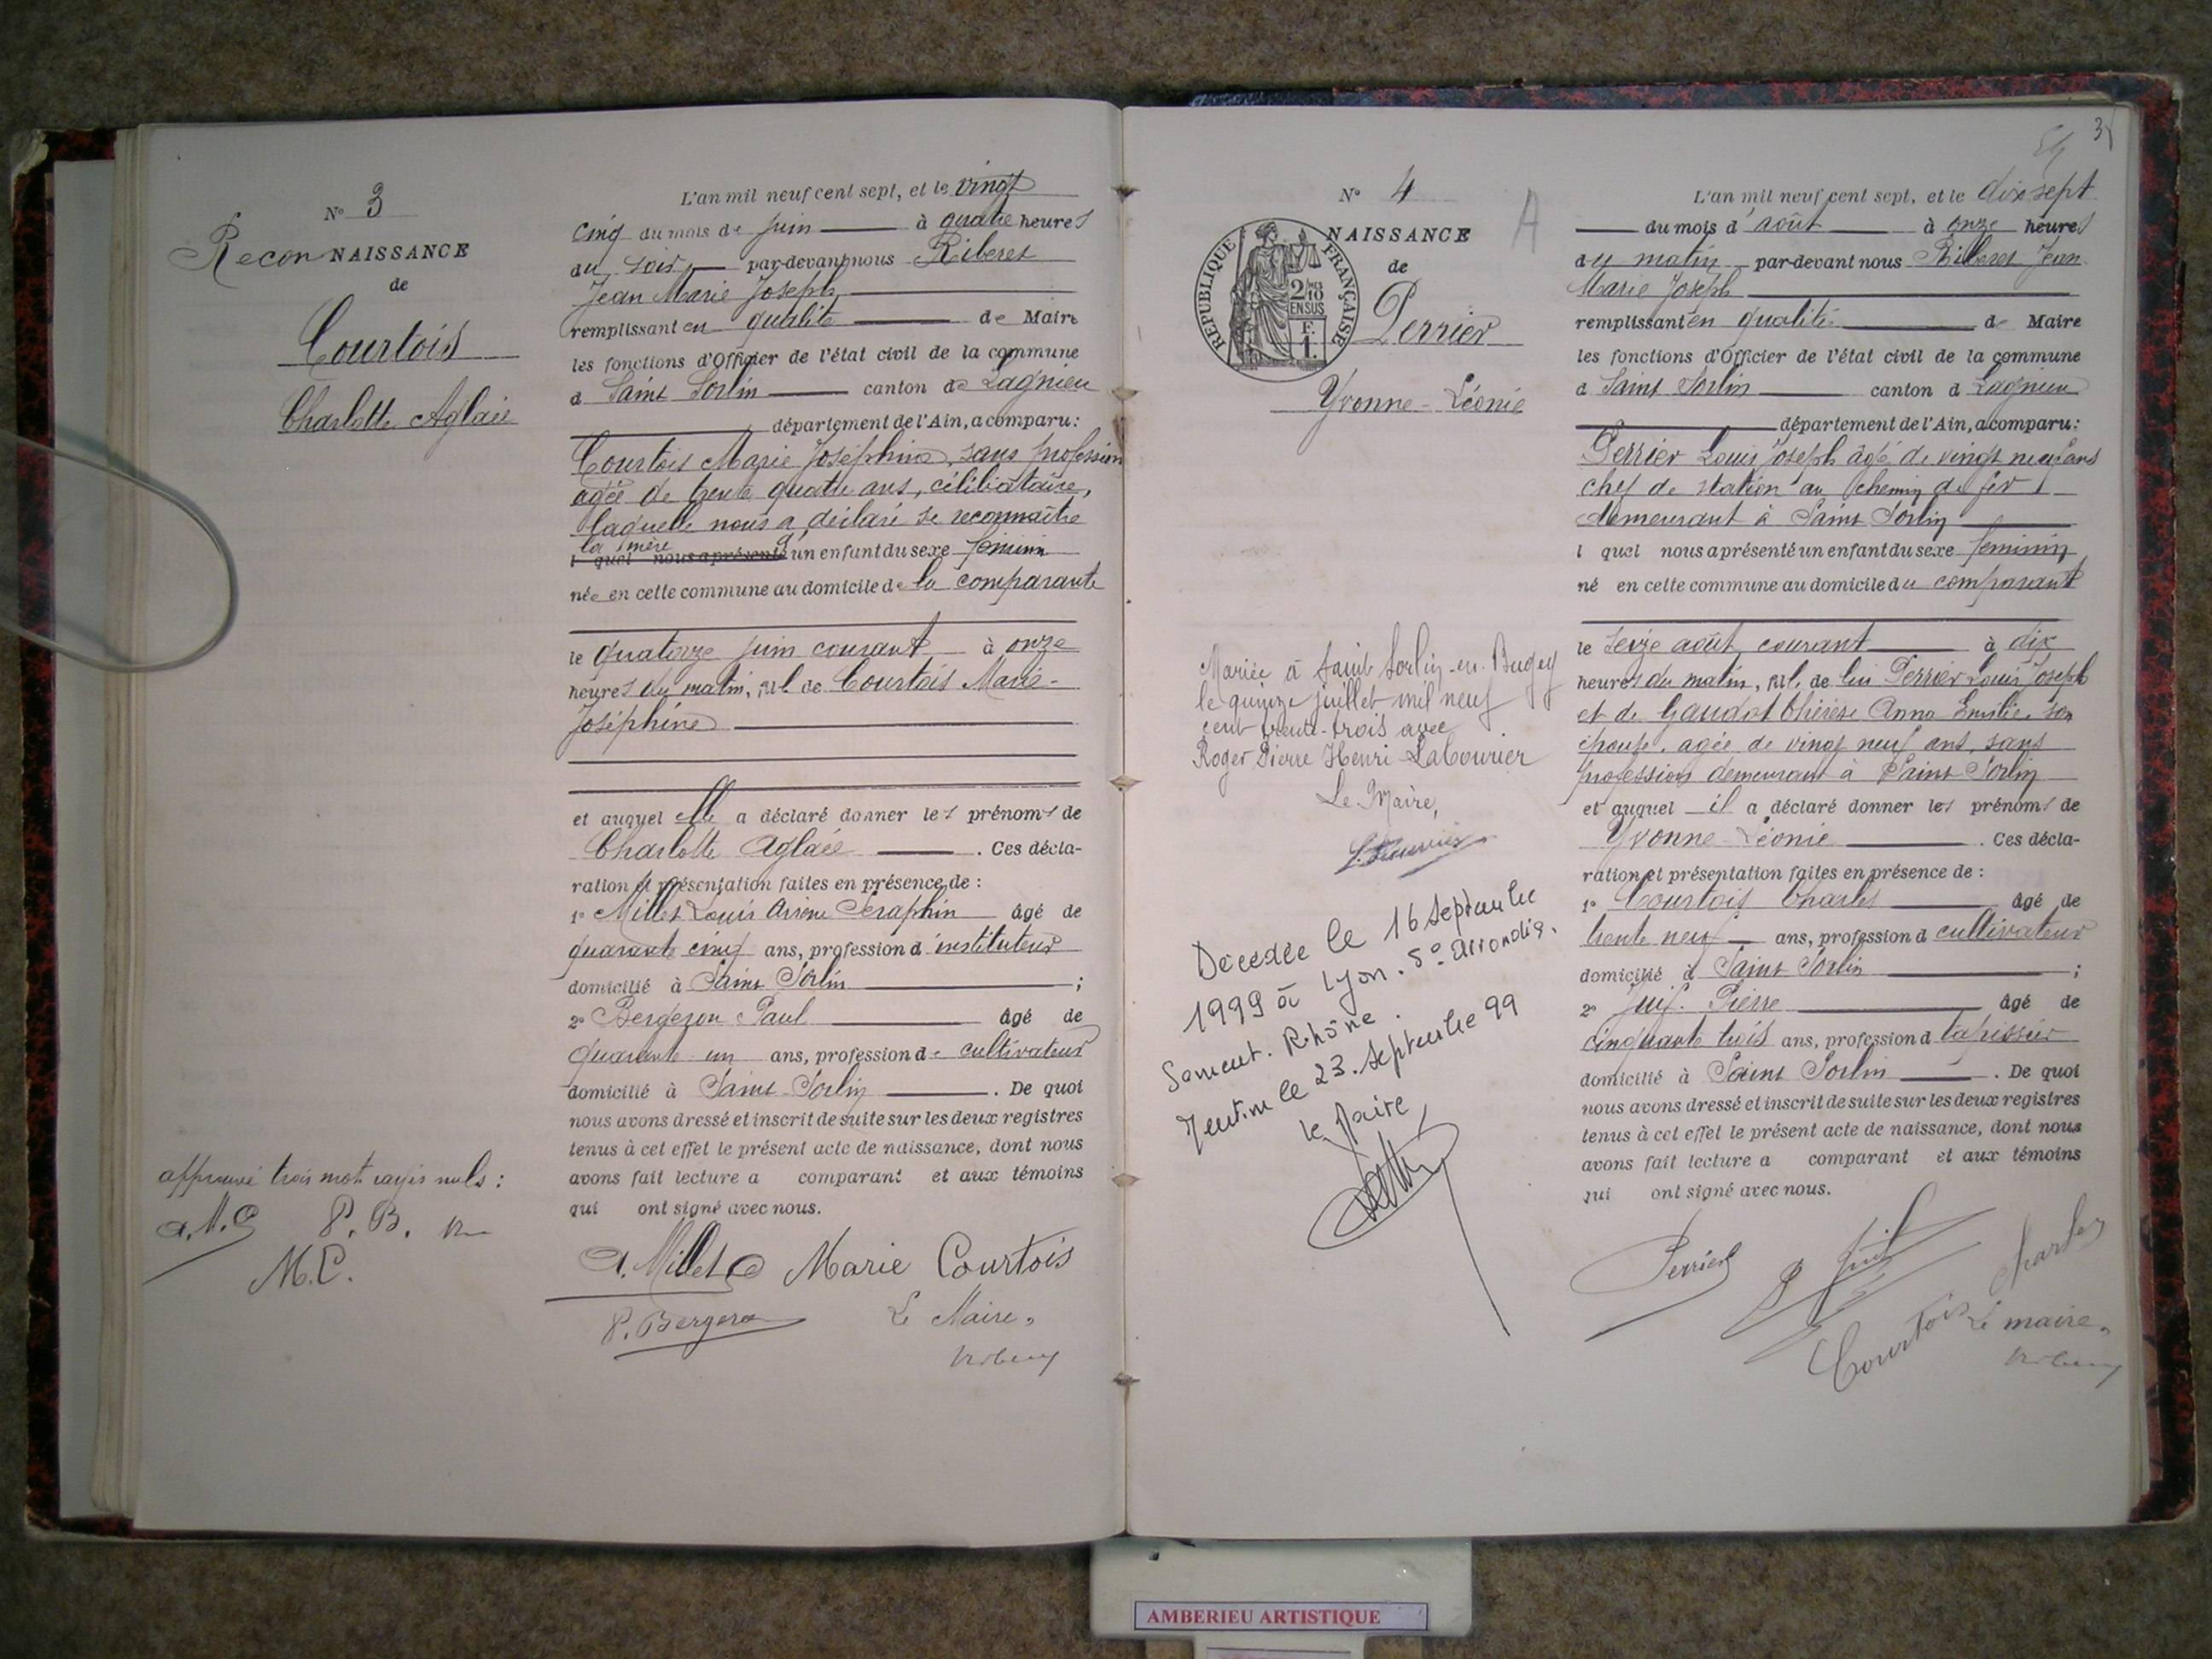 N° 3
ReconNAISSANCE
de
Courtois
Charlotte Aglaée
L'an mil neuf cent sept, et le vingt
cinq du mois de juin à quatre heures
du soir par-devant nous Riberet
Jean Marie Joseph
remplissant en qualité de Maire
les fonctions d'Officier de l'état civil de la commune
d Saint Sorlin canton de Lagnieu
département de l'Ain, a comparu:
Courtois Marie Joséphine, sans profession
agée de trente quatre ans, célibataire,
laquelle nous a déclaré se reconnaître
la mère d'
l quel nous a présenté un enfant du sexe féminin
née en cette commune au domicile de la comparante
le quatorze juin courant à onze
heures du matin, fil. de Courtois Marie-
Joséphine
et auquel elle a déclaré donner les prénoms de
Charlotte Aglaée . Ces décla-
ration et présentation faites en présence de :
1° Millet Louis Arsène Séraphin âgé de
quarante cinq ans, profession d'instituteur
domicilié à Saint Sorlin ;
2° Bergeron Paul âgé de
quarante un ans, profession de cultivateur
domicilié à Saint-Sorlin . De quoi
nous avons dressé et inscrit de suite sur les deux registres
tenus à cet effet le présent acte de naissance, dont nous
avons fait lecture a comparant et aux témoins
qui ont signé avec nous.
approuvé trois mots rayés nuls :
A.M. P. B.
M.C.
A. Millet Marie Courtois
P. Bergeron Le Maire,
3
N° 4
A
NAISSANCE
de
REPUBLIQUE FRANÇAISE
2/10 EN SUS
F. 1.
Perrier
Yvonne-Léonie
L'an mil neuf cent sept, et le dix sept
du mois d'août à onze heures
du matin par-devant nous Riberet Jean
Marie Joseph
remplissant en qualité de Maire
les fonctions d'Officier de l'état civil de la commune
d Saint Sorlin canton d Lagnieu
département de l'Ain, a comparu:
Perrier Louis Joseph âgé de vingt neuf ans
chef de station au chemin de fer
demeurant à Saint Sorlin
l quel nous a présenté un enfant du sexe féminin
né en cette commune au domicile du comparant
le seize août courant à dix
heures du matin, fil. de lui Perrier Louis Joseph
et de Gaudot Thérèse Anna Emilie, son
épouse, agée de vingt neuf ans, sans
profession demeurant à Saint Sorlin
et auquel il a déclaré donner les prénoms de
Yvonne-Léonie . Ces décla-
ration et présentation faites en présence de :
1° Courtois Charles âgé de
trente neuf ans, profession d cultivateur
domicilié à Saint Sorlin ;
2° Juif Pierre âgé de
cinquante trois ans, profession d tapissier
domicilié à Saint Sorlin . De quoi
nous avons dressé et inscrit de suite sur les deux registres
tenus à cet effet le présent acte de naissance, dont nous
avons fait lecture a comparant et aux témoins
qui ont signé avec nous.
Mariée à Saint Sorlin-en-Bugey
le quinze juillet mil neuf
cent trente-trois avec
Roger Pierre Henri Labourier
Le Maire,
Décédée le 16 septembre
1999 à Lyon. 5° Arrondis.
sement. Rhône.
Mention le 23 septembre 99
le Maire
Perrier P Juif Courtois Charles
Le maire,
AMBERIEU ARTISTIQUE